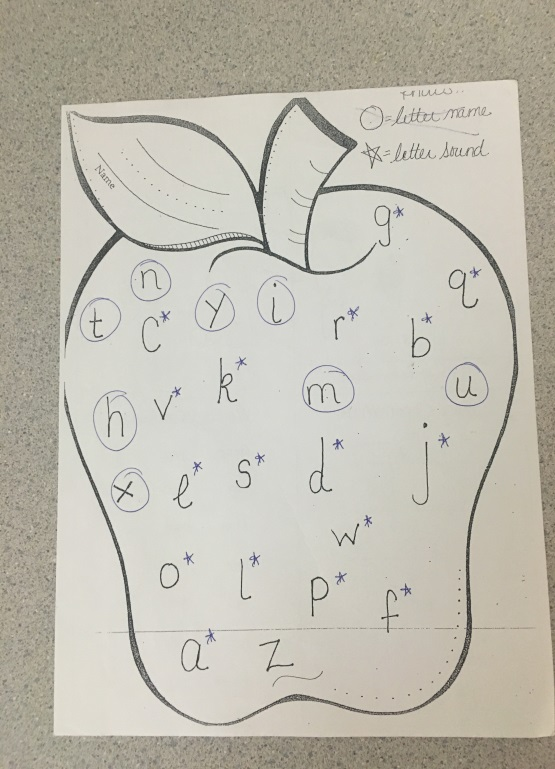 ○=letter name
☆=letter sound
Name
g*
n
q*
t c* y i r* b*
k*
h v* m u
x e* s* d* j*
w*
o* l* p* f*
a* z